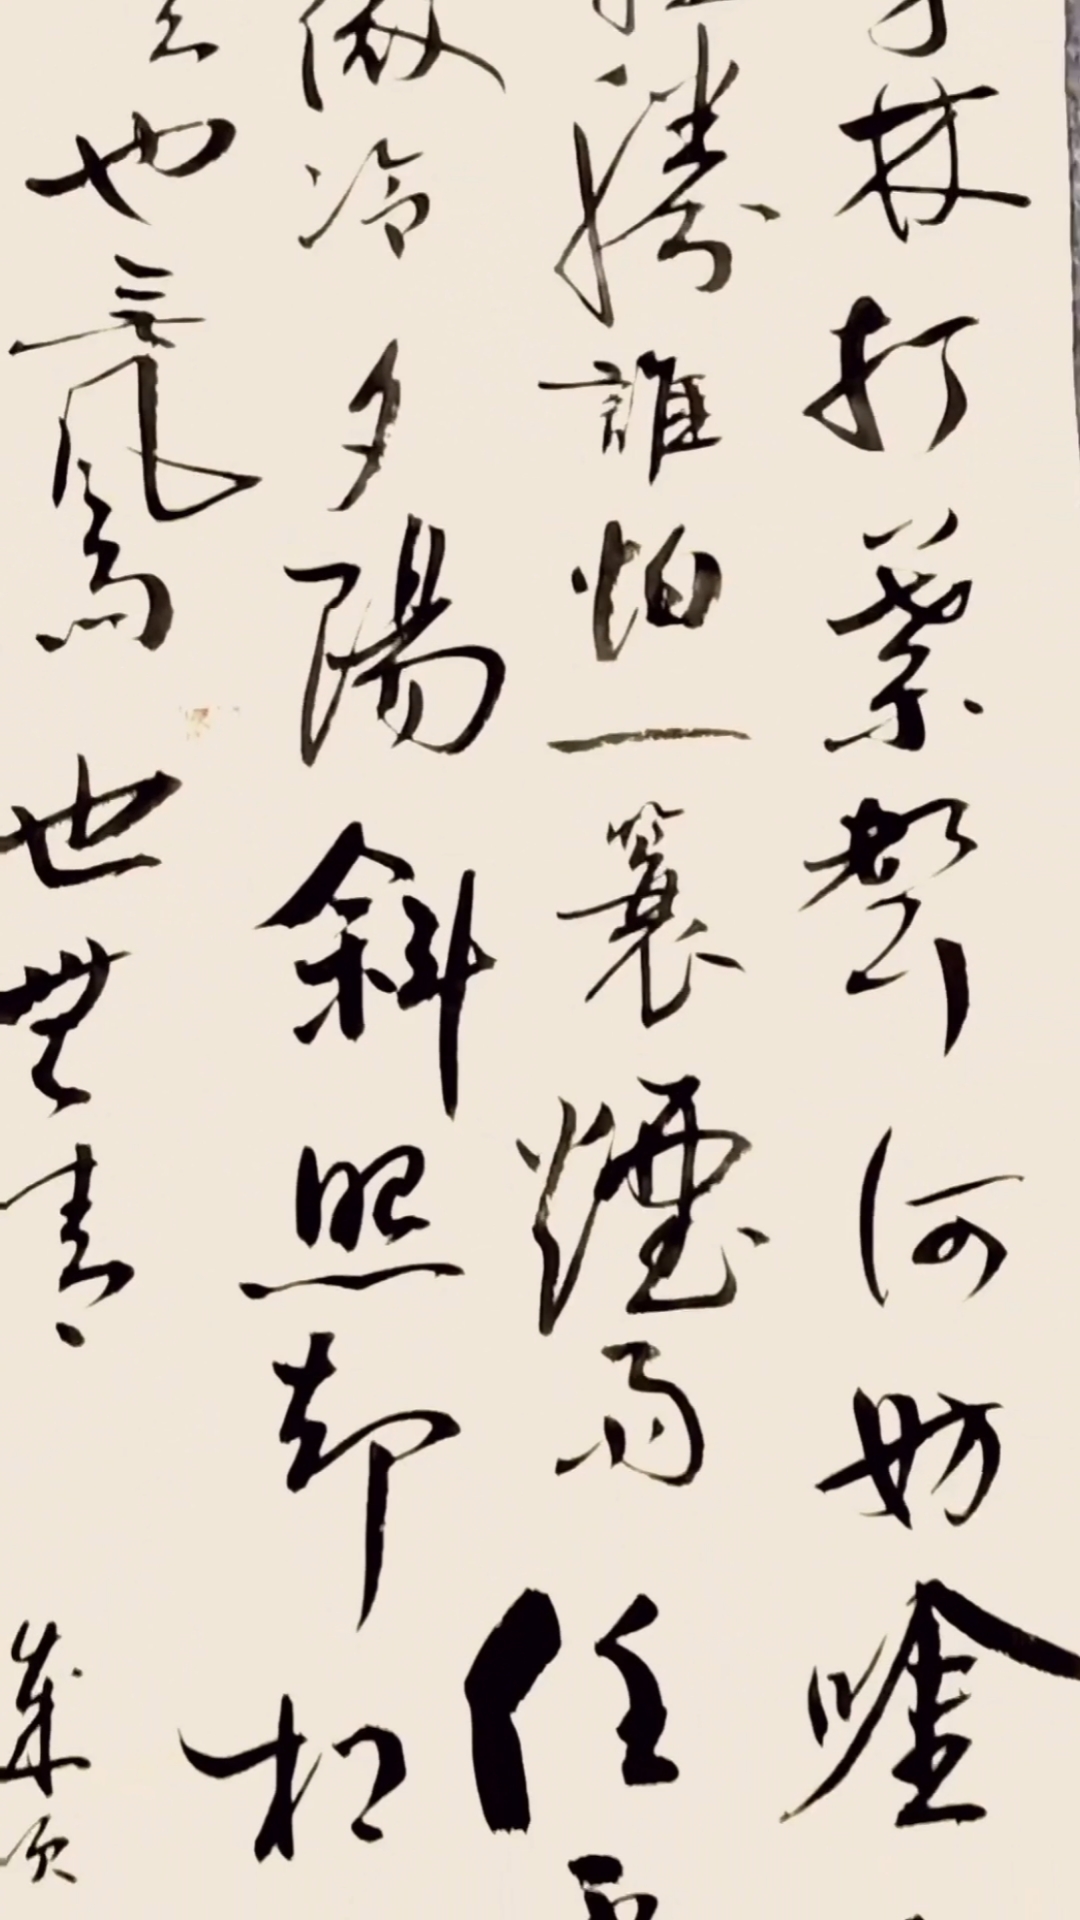 林打葉聲何妨唫
勝誰怕一蓑煙雨任
微冷夕陽斜照却相
也無風也無
歲次